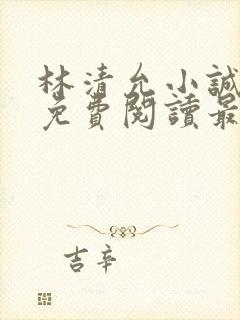 林清允小誠
免費閱讀最
吉辛